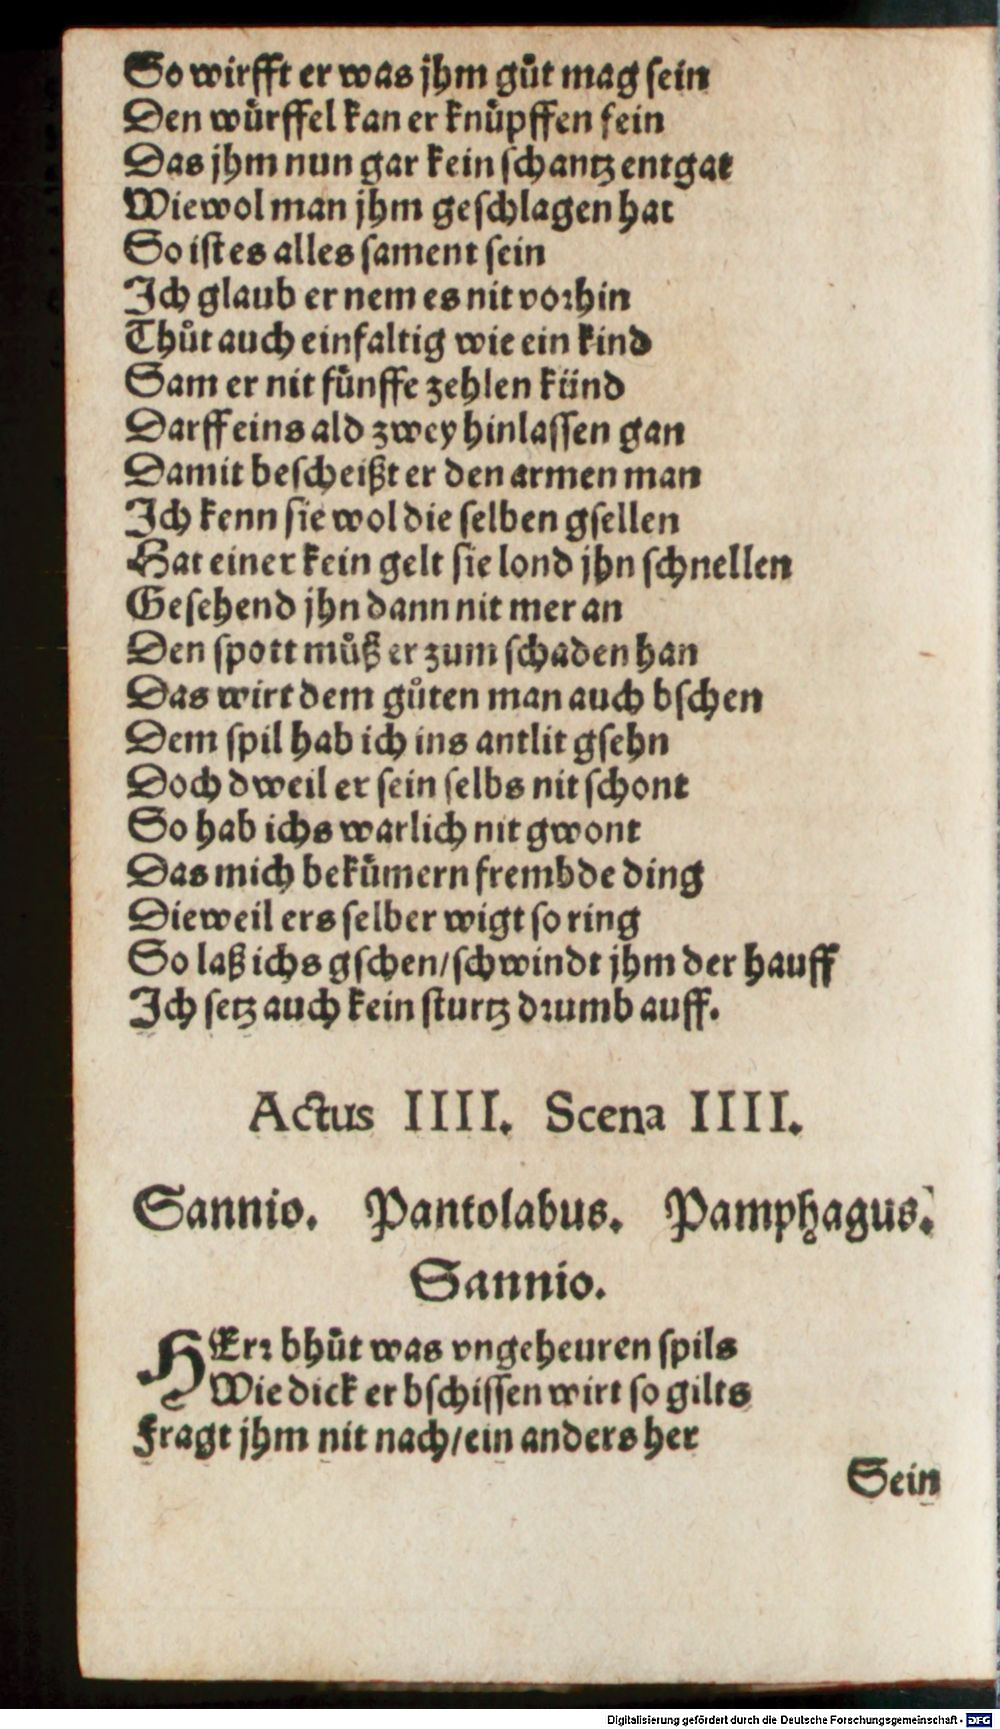 So wirfft er was jhm gůt mag sein
Den wu̍rffel kan er knu̍pffen fein
Das jhm nun gar kein schantz entgat
Wiewol man jhm geschlagen hat
So ist es alles sament sein
Ich glaub er nem es nit vorhin
Thůt auch einfaltig wie ein kind
Sam er nit fu̍nffe zehlen künd
Darff eins ald zwey hinlassen gan
Damit bescheißt er den armen man
Ich kenn sie wol die selben gsellen
Hat einer kein gelt sie lond jhn schnellen
Gesehend jhn dann nit mer an
Den spott můß er zum schaden han
Das wirt dem gůten man auch bschen
Dem spil hab ich ins antlit gsehn
Doch dweil er sein selbs nit schont
So hab ichs warlich nit gwont
Das mich beku̍mern frembde ding
Dieweil ers selber wigt so ring
So laß ichs gschen/schwindt jhm der hauff
Ich setz auch kein sturtz drumb auff.
Actus IIII. Scena IIII.
Sannio. Pantolabus. Pamphagus.
Sannio.
HErr bhu̍t was vngeheuren spils
Wie dick er bschissen wirt so gilts
Fragt jhm nit nach/ein anders her
Sein
Digitalisierung gefördert durch die Deutsche Forschungsgemeinschaft - DFG